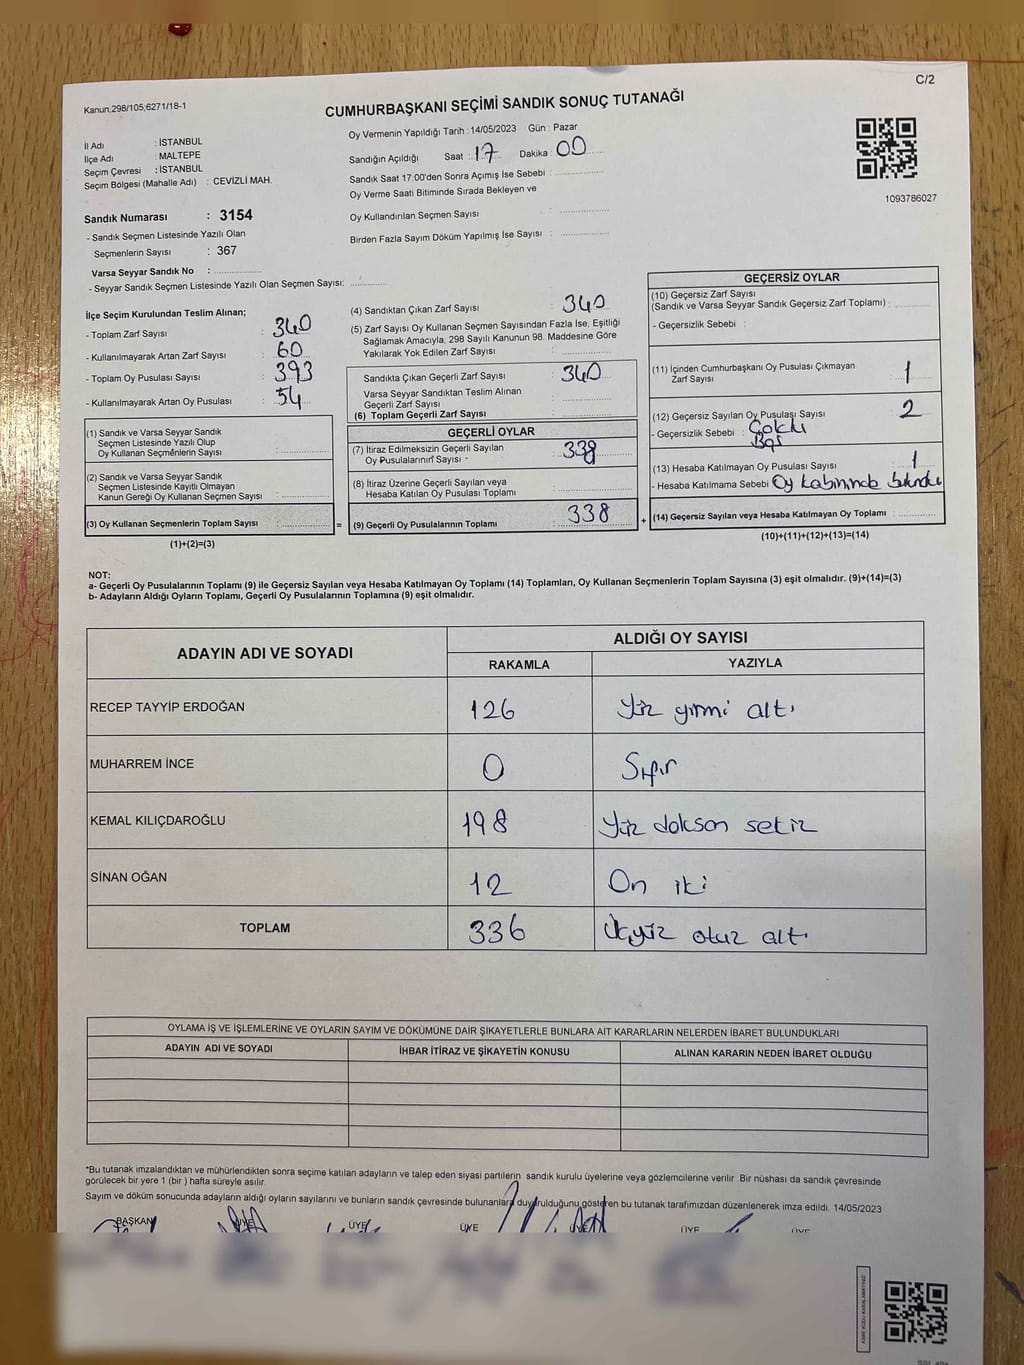 C/2
Kanun;298/105;6271/18-1
CUMHURBAŞKANI SEÇİMİ SANDIK SONUÇ TUTANAĞI
İl Adı : İSTANBUL
İlçe Adı : MALTEPE
Seçim Çevresi : İSTANBUL
Seçim Bölgesi (Mahalle Adı) : CEVİZLİ MAH.
Sandık Numarası : 3154
- Sandık Seçmen Listesinde Yazılı Olan
Seçmenlerin Sayısı : 367
Varsa Seyyar Sandık No :
- Seyyar Sandık Seçmen Listesinde Yazılı Olan Seçmen Sayısı:
Oy Vermenin Yapıldığı Tarih : 14/05/2023 Gün : Pazar
Sandığın Açıldığı Saat : 17 Dakika : 00
Sandık Saat 17:00'den Sonra Açımış İse Sebebi :
Oy Verme Saati Bitiminde Sırada Bekleyen ve
Oy Kullandırılan Seçmen Sayısı :
Birden Fazla Sayım Döküm Yapılmış İse Sayısı :
1093786027
İlçe Seçim Kurulundan Teslim Alınan;
- Toplam Zarf Sayısı : 340
- Kullanılmayarak Artan Zarf Sayısı : 60
- Toplam Oy Pusulası Sayısı : 393
- Kullanılmayarak Artan Oy Pusulası : 54
(1) Sandık ve Varsa Seyyar Sandık
Seçmen Listesinde Yazılı Olup
Oy Kullanan Seçmenlerin Sayısı :
(2) Sandık ve Varsa Seyyar Sandık
Seçmen Listesinde Kayıtlı Olmayan
Kanun Gereği Oy Kullanan Seçmen Sayısı :
(3) Oy Kullanan Seçmenlerin Toplam Sayısı :
(1)+(2)=(3)
(4) Sandıktan Çıkan Zarf Sayısı : 340
(5) Zarf Sayısı Oy Kullanan Seçmen Sayısından Fazla İse, Eşitliği
Sağlamak Amacıyla; 298 Sayılı Kanunun 98. Maddesine Göre
Yakılarak Yok Edilen Zarf Sayısı :
Sandıkta Çıkan Geçerli Zarf Sayısı : 340
Varsa Seyyar Sandıktan Teslim Alınan
Geçerli Zarf Sayısı :
(6) Toplam Geçerli Zarf Sayısı :
GEÇERLİ OYLAR
(7) İtiraz Edilmeksizin Geçerli Sayılan
Oy Pusulalarının Sayısı : 338
(8) İtiraz Üzerine Geçerli Sayılan veya
Hesaba Katılan Oy Pusulası Toplamı :
= (9) Geçerli Oy Pusulalarının Toplamı : 338 +
GEÇERSİZ OYLAR
(10) Geçersiz Zarf Sayısı
(Sandık ve Varsa Seyyar Sandık Geçersiz Zarf Toplamı) :
- Geçersizlik Sebebi :
(11) İçinden Cumhurbaşkanı Oy Pusulası Çıkmayan
Zarf Sayısı : 1
(12) Geçersiz Sayılan Oy Pusulası Sayısı : 2
- Geçersizlik Sebebi : Çoklu
Boş
(13) Hesaba Katılmayan Oy Pusulası Sayısı : 1
- Hesaba Katılmama Sebebi : Oy kabininde bulundu
(14) Geçersiz Sayılan veya Hesaba Katılmayan Oy Toplamı :
(10)+(11)+(12)+(13)=(14)
NOT:
a- Geçerli Oy Pusulalarının Toplamı (9) ile Geçersiz Sayılan veya Hesaba Katılmayan Oy Toplamı (14) Toplamları, Oy Kullanan Seçmenlerin Toplam Sayısına (3) eşit olmalıdır. (9)+(14)=(3)
b- Adayların Aldığı Oyların Toplamı, Geçerli Oy Pusulalarının Toplamına (9) eşit olmalıdır.
ADAYIN ADI VE SOYADI ALDIĞI OY SAYISI
RAKAMLA YAZIYLA
RECEP TAYYİP ERDOĞAN 126 Yüz yirmi altı
MUHARREM İNCE 0 Sıfır
KEMAL KILIÇDAROĞLU 198 Yüz doksan sekiz
SİNAN OĞAN 12 On iki
TOPLAM 336 Üçyüz otuz altı
OYLAMA İŞ VE İŞLEMLERİNE VE OYLARIN SAYIM VE DÖKÜMÜNE DAİR ŞİKAYETLERLE BUNLARA AİT KARARLARIN NELERDEN İBARET BULUNDUKLARI
ADAYIN ADI VE SOYADI İHBAR İTİRAZ VE ŞİKAYETİN KONUSU ALINAN KARARIN NEDEN İBARET OLDUĞU
*Bu tutanak imzalandıktan ve mühürlendikten sonra seçime katılan adayların ve talep eden siyasi partilerin sandık kurulu üyelerine veya gözlemcilerine verilir. Bir nüshası da sandık çevresinde
görülecek bir yere 1 (bir ) hafta süreyle asılır.
Sayım ve döküm sonucunda adayların aldığı oyların sayılarını ve bunların sandık çevresinde bulunanlara duyurulduğunu gösteren bu tutanak tarafımızdan düzenlenerek imza edildi. 14/05/2023
BAŞKAN ÜYE ÜYE ÜYE ÜYE ÜYE ÜYE